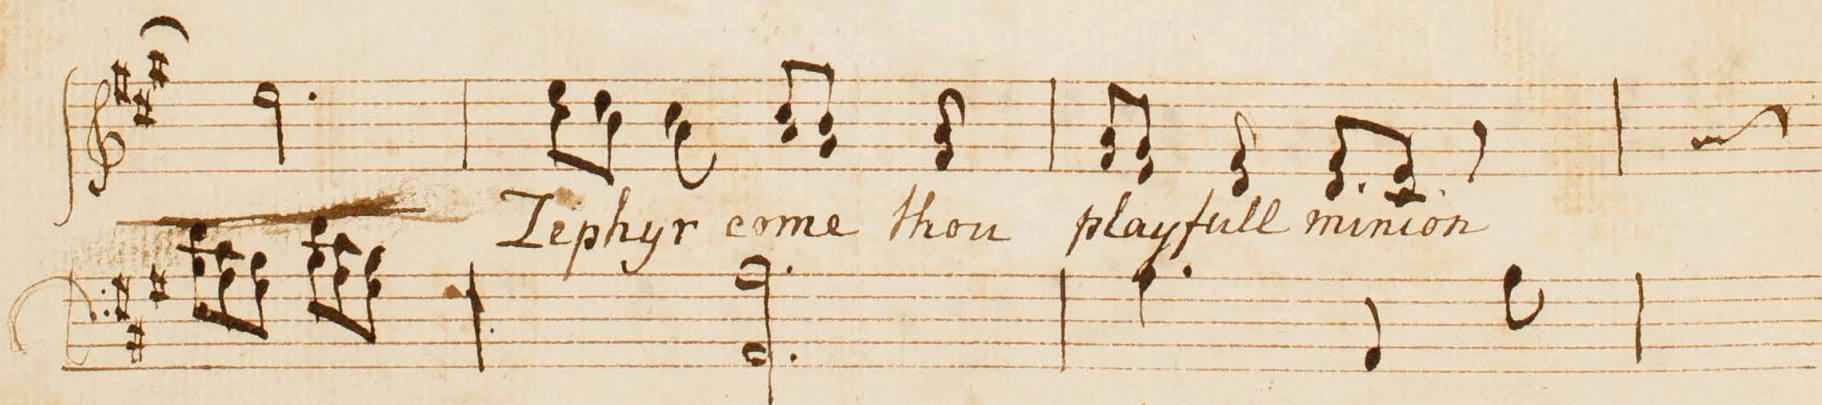 Zephyr come thou playfull minion